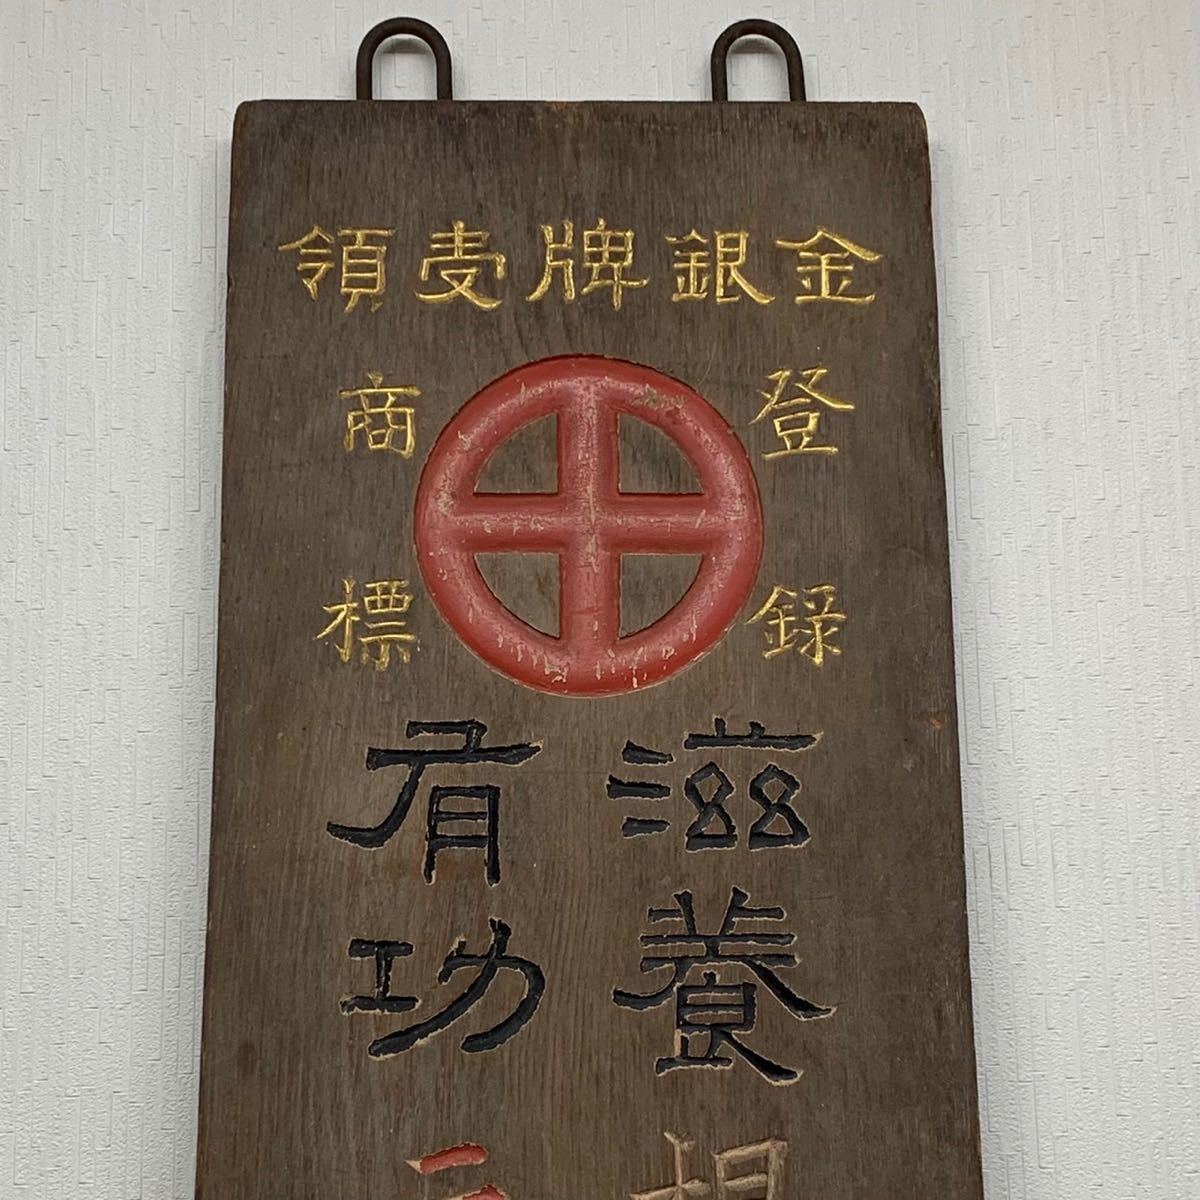 金銀牌受領
登録
商標
滋養
有功